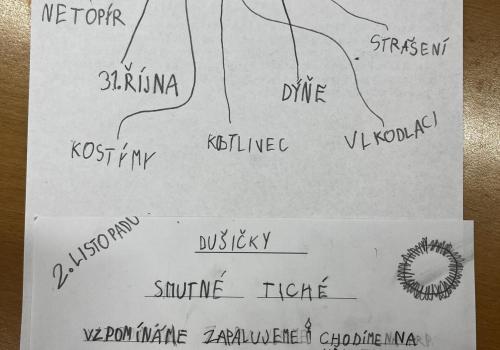 NETOPÍR
STRAŠENÍ
31.ŘÍJNA
DÝŇE
KOSTÝMY
KOSTLIVEC
VLKODLACI
2. LISTOPADU
DUŠIČKY
SMUTNÉ TICHÉ
VZPOMÍNÁME ZAPALUJEME CHODÍME NA